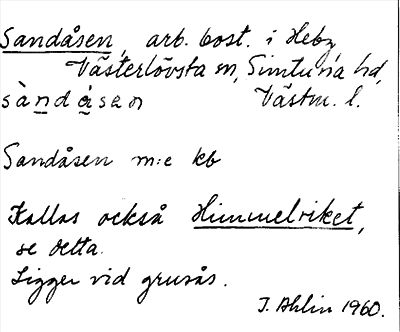 Sandåsen, arb. bost. i Heby,
Västerlövsta sn, Simtuna hd,
sàndásen Västm. l.
Sandåsen m:e kb
Kallas också Himmelriket,
se detta.
Ligger vid grusås.
I. Ahlin 1960.